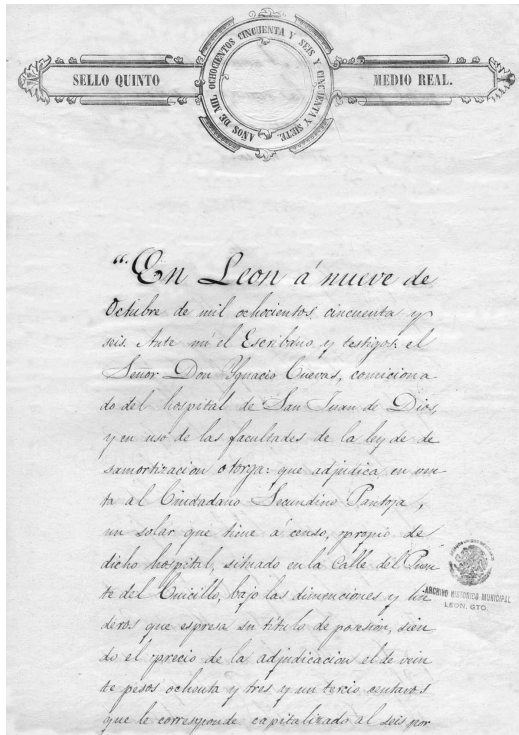 SELLO QUINTO
AÑOS DE MIL OCHOCIENTOS CINCUENTA Y SEIS Y CINCUENTA Y SIETE.
MEDIO REAL.
"En Leon á nueve de
Octubre de mil ochocientos cincuenta y
seis Ante mí el Escribano y testigos el
Señor Don Ygnacio Cuevas, comiciona
do del hospital de San Juan de Dios,
y en uso de las facultades de la ley de de
samortizacion otorga: que adjudica en ven
ta al Ciudadano Secundino Pantoja,
un solar que tiene á censo, propio de
dicho hospital, situado en la Calle del Puen
te del Cuicillo, bajo las dimenciones y lin
deros que espresa su título de posesión, sien
do el precio de la adjudicacion el de vein
te pesos ochenta y tres y un tercio centavos
que le corresponde capitalizado al seis por
ARCHIVO HISTORICO MUNICIPAL
LEON, GTO.